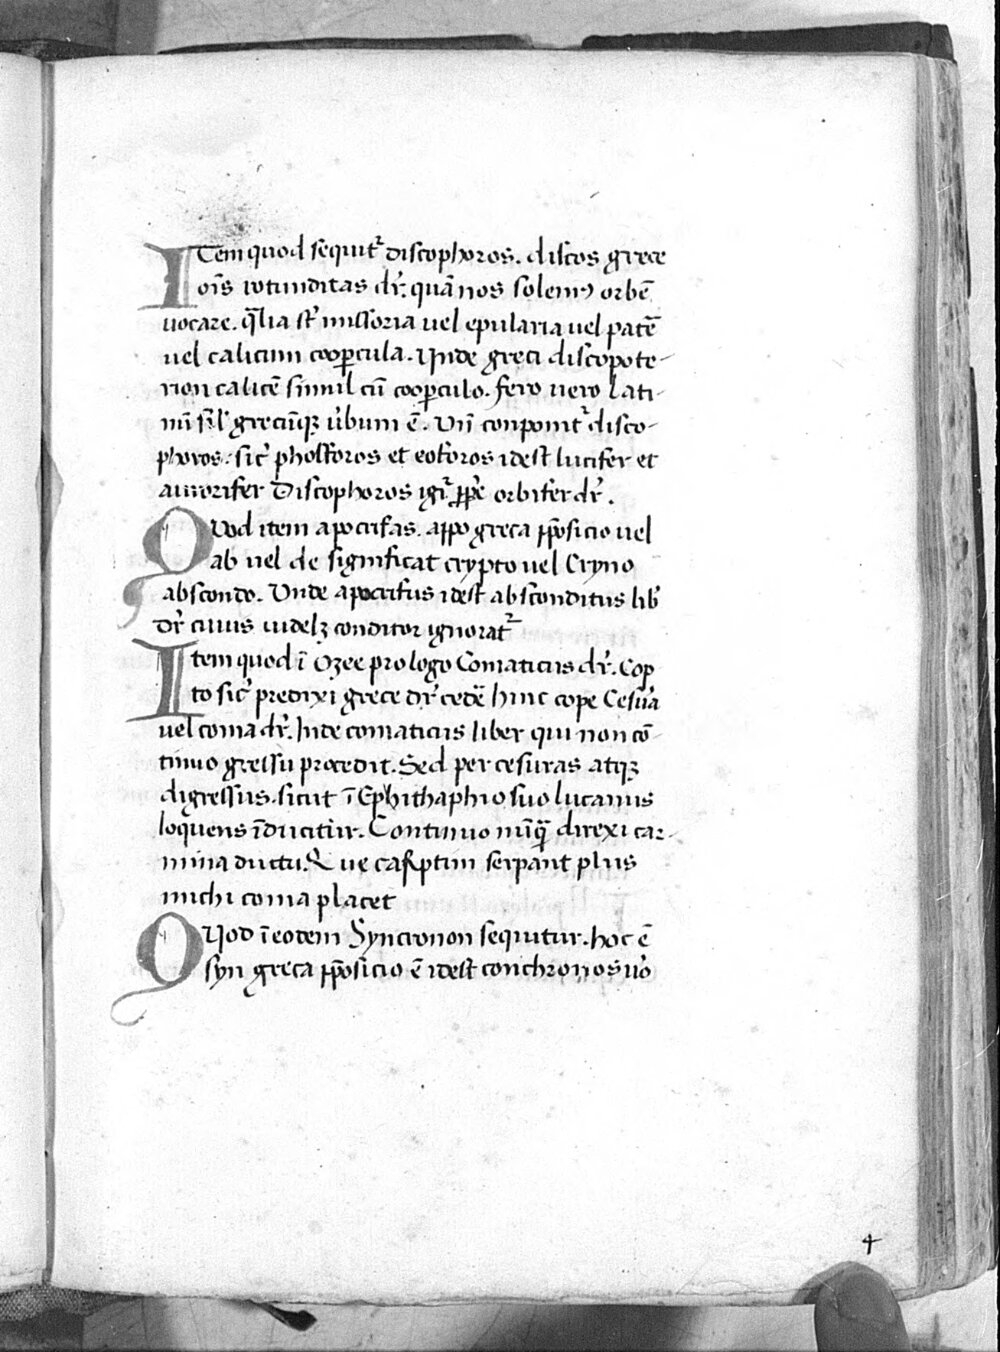 ITem quod sequit᷑ discophoros. discos grece
oīs rotunditas dr̄. quā nos solemꝰ orbē
uocare. q̄lia st̄ missoria uel epularia uel patē
uel calicum cooꝑcula. Inde greci discopote-
rion calicē simul cū cooꝑculo. fero uero lati-
nū sil' grecūqꝫ ūbum ē. Vn̄ conponit᷑ disco-
phoros: sic̄ phosforos et eoforos idest lucifer et
aurorifer Discophoros igr̄ ꝓṗe orbifer dr̄.
QVod item apocrifas. appo greca p̄posicio uel
ab uel de significat crypto uel Cryno
abscondo. Vnde apocrifus idest absconditus lib̄
dr̄ cuius uidelꝫ conditor ignorat᷑
Item quod ī Ozee prologo Comaticus dr̄. Cop
to sic̄ predixi grece dr̄ cedē hinc cope Cesūa
uel coma dr̄. Inde comaticus liber qui non cō-
tinuo gressu procedit. Sed per cesuras atqꝫ
digressus. sicut ī Ephithaphio suo lucanus
loquens īducitur. Continuo nūq̄ direxi car-
mina ductu. Que carptim serpant plus
michi coma placet
QVod ī eodem Syncronon sequitur. hoc ē
syn greca p̄posicio ē idest con chronos ūo
4